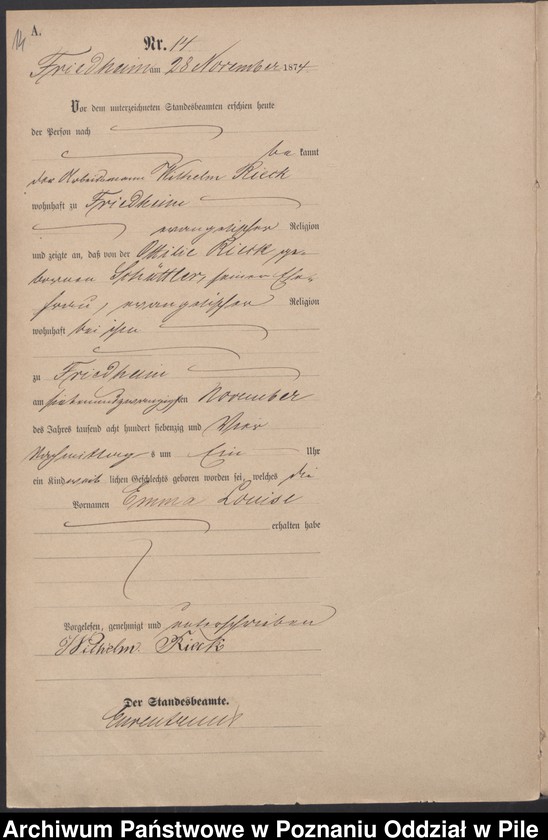 14
A.
Nr. 14
Friedheim am 28 November 1874
Vor dem unterzeichneten Standesbeamten erschien heute
der Person nach
be kannt
der Arbeitsmann Wilhelm Rieck
wohnhaft zu Friedheim
evangelischer Religion
und zeigte an, daß von der Ottilie Rieck, ge-
bornen Schüttler, seiner Ehe-
frau, evangelischer Religion
wohnhaft bei ihm
zu Friedheim
am siebenundzwanzigsten November
des Jahres tausend acht hundert siebenzig und Vier
Nachmittag s um Ein Uhr
ein Kind weib lichen Geschlechts geboren worden sei, welches die
Vornamen Emma Louise
erhalten habe
Vorgelesen, genehmigt und unterschrieben
Wilhelm Rieck
Der Standesbeamte.
Archiwum Państwowe w Poznaniu Oddział w Pile